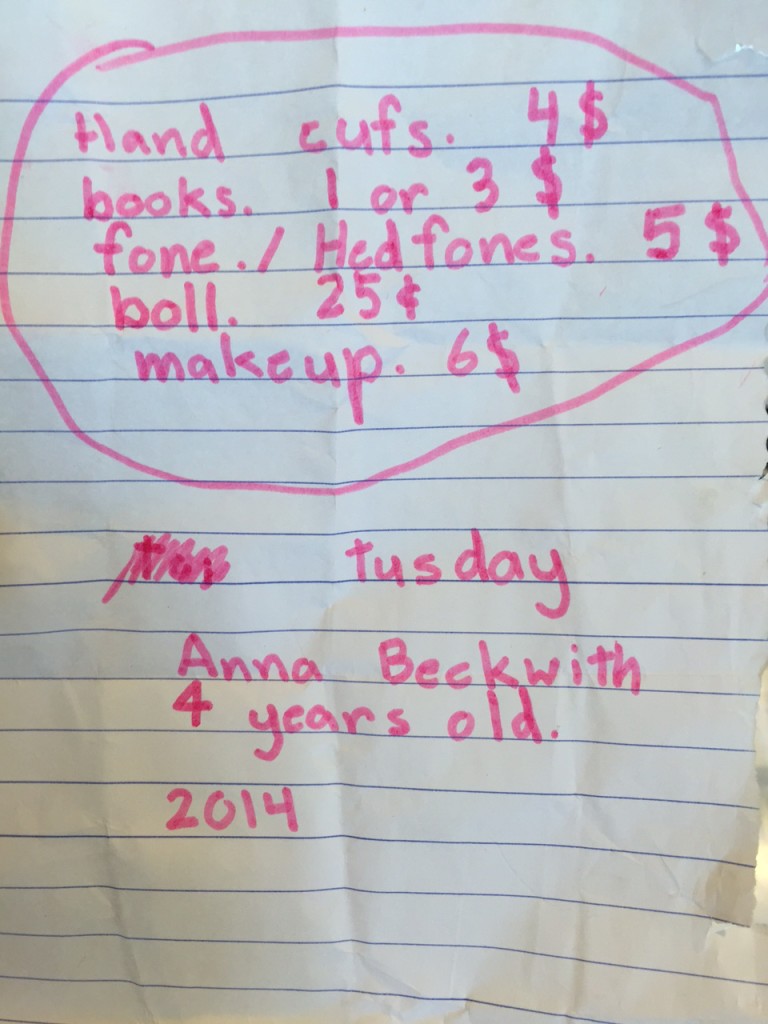 Hand cufs. 4$
books. 1 or 3$
fone./Hedfones. 5$
boll. 25¢
makeup. 6$
tusday
Anna Beckwith
4 years old.
2014